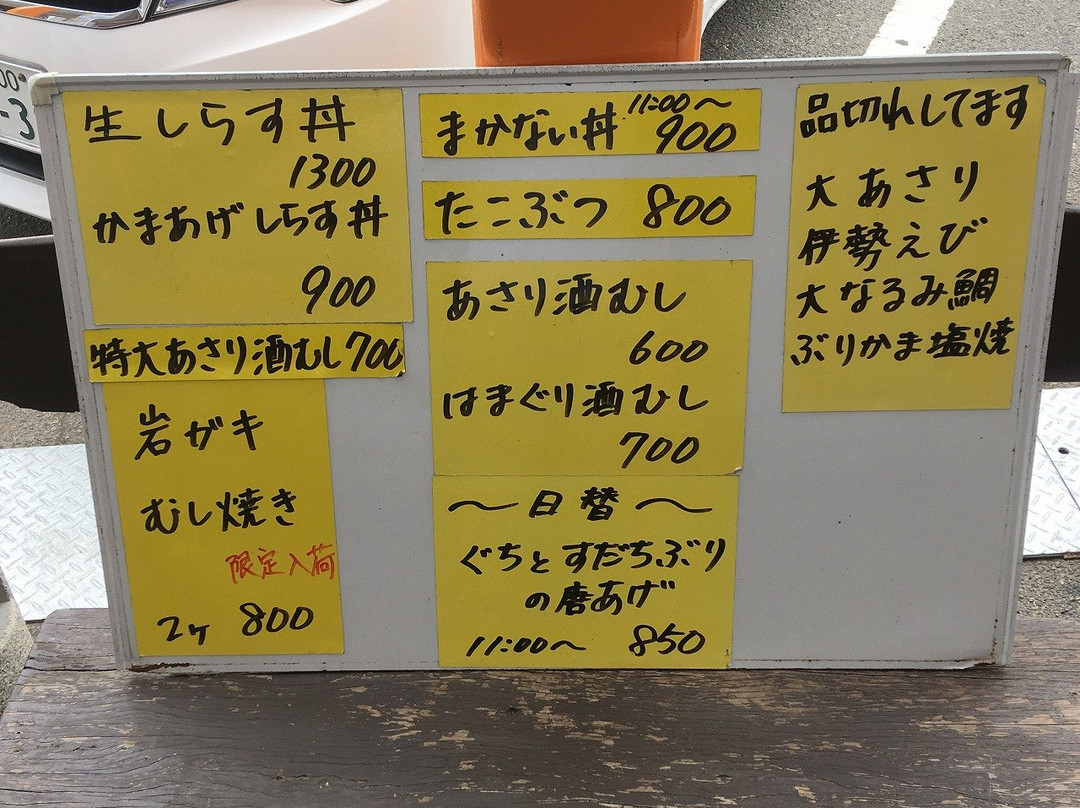 生しらす丼
1300
かまあげしらす丼
900
特大あさり酒むし700
岩ガキ
むし焼き
限定入荷
2ヶ 800
11:00〜
まかない丼 900
たこぶつ 800
あさり酒むし
600
はまぐり酒むし
700
〜日替〜
ぐちとすだちぶり
の唐あげ
11:00〜 850
品切れしてます
大あさり
伊勢えび
大なるみ鯛
ぶりかま塩焼
00
-3